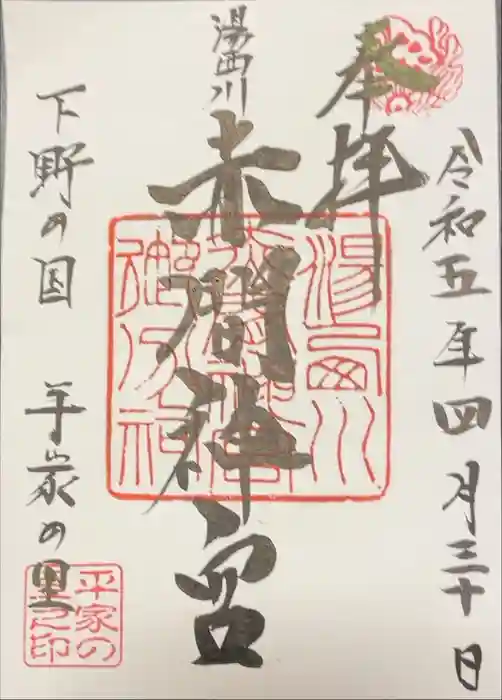 令和五年四月三十日
奉拝
湯西川
赤間神宮
下野の国 平家の里
湯西川
平家の
里之印